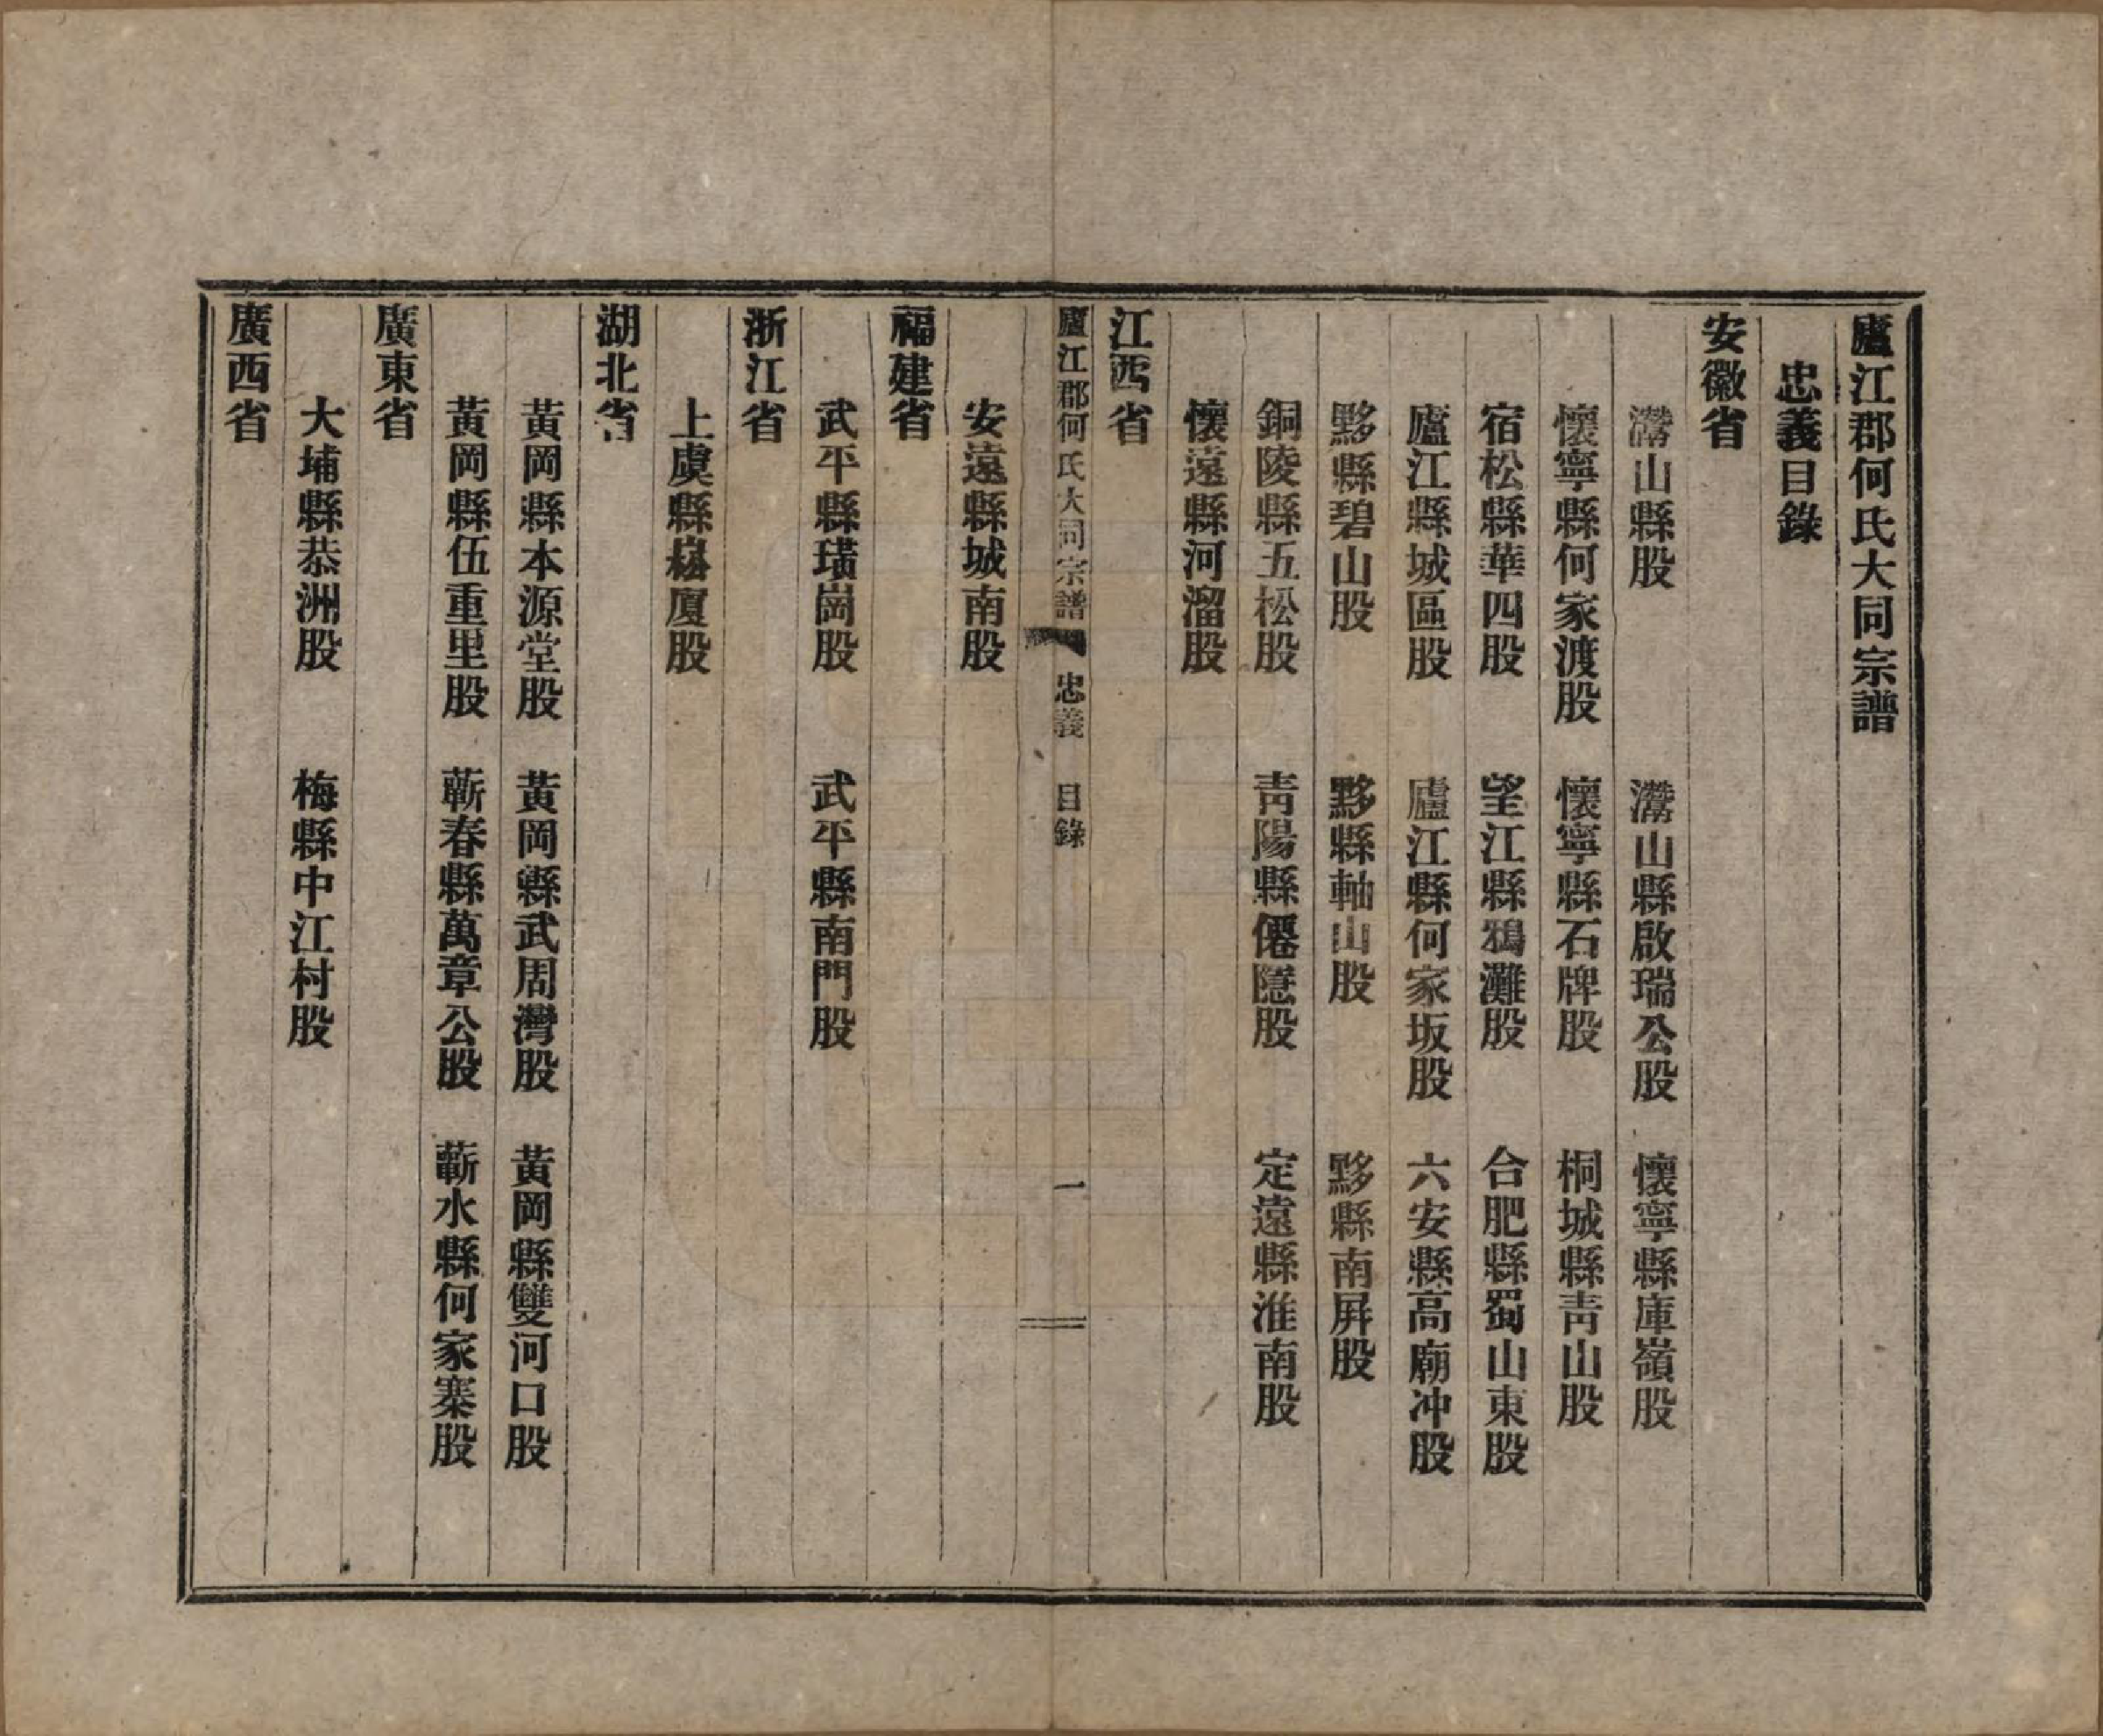 廬江郡何氏大同宗譜
忠義目錄
安徽省
灊山縣股　灊山縣啟瑞公股　懷寧縣庫嶺股
懷寧縣何家渡股　懷寧縣石牌股　桐城縣青山股
宿松縣華四股　望江縣鴉灘股　合肥縣蜀山東股
廬江縣城區股　廬江縣何家坂股　六安縣高廟冲股
黟縣碧山股　黟縣軸山股　黟縣南屏股
銅陵縣五松股　青陽縣僊隱股　定遠縣淮南股
懷遠縣河溜股
江西省
廬江郡何氏大同宗譜　忠義　目錄　一
安遠縣城南股
福建省
武平縣璜崗股　武平縣南門股
浙江省
上虞縣崧廈股
湖北省
黃岡縣本源堂股　黃岡縣武周灣股　黃岡縣雙河口股
黃岡縣伍重里股　蘄春縣萬章公股　蘄水縣何家寨股
廣東省
大埔縣恭洲股　梅縣中江村股
廣西省